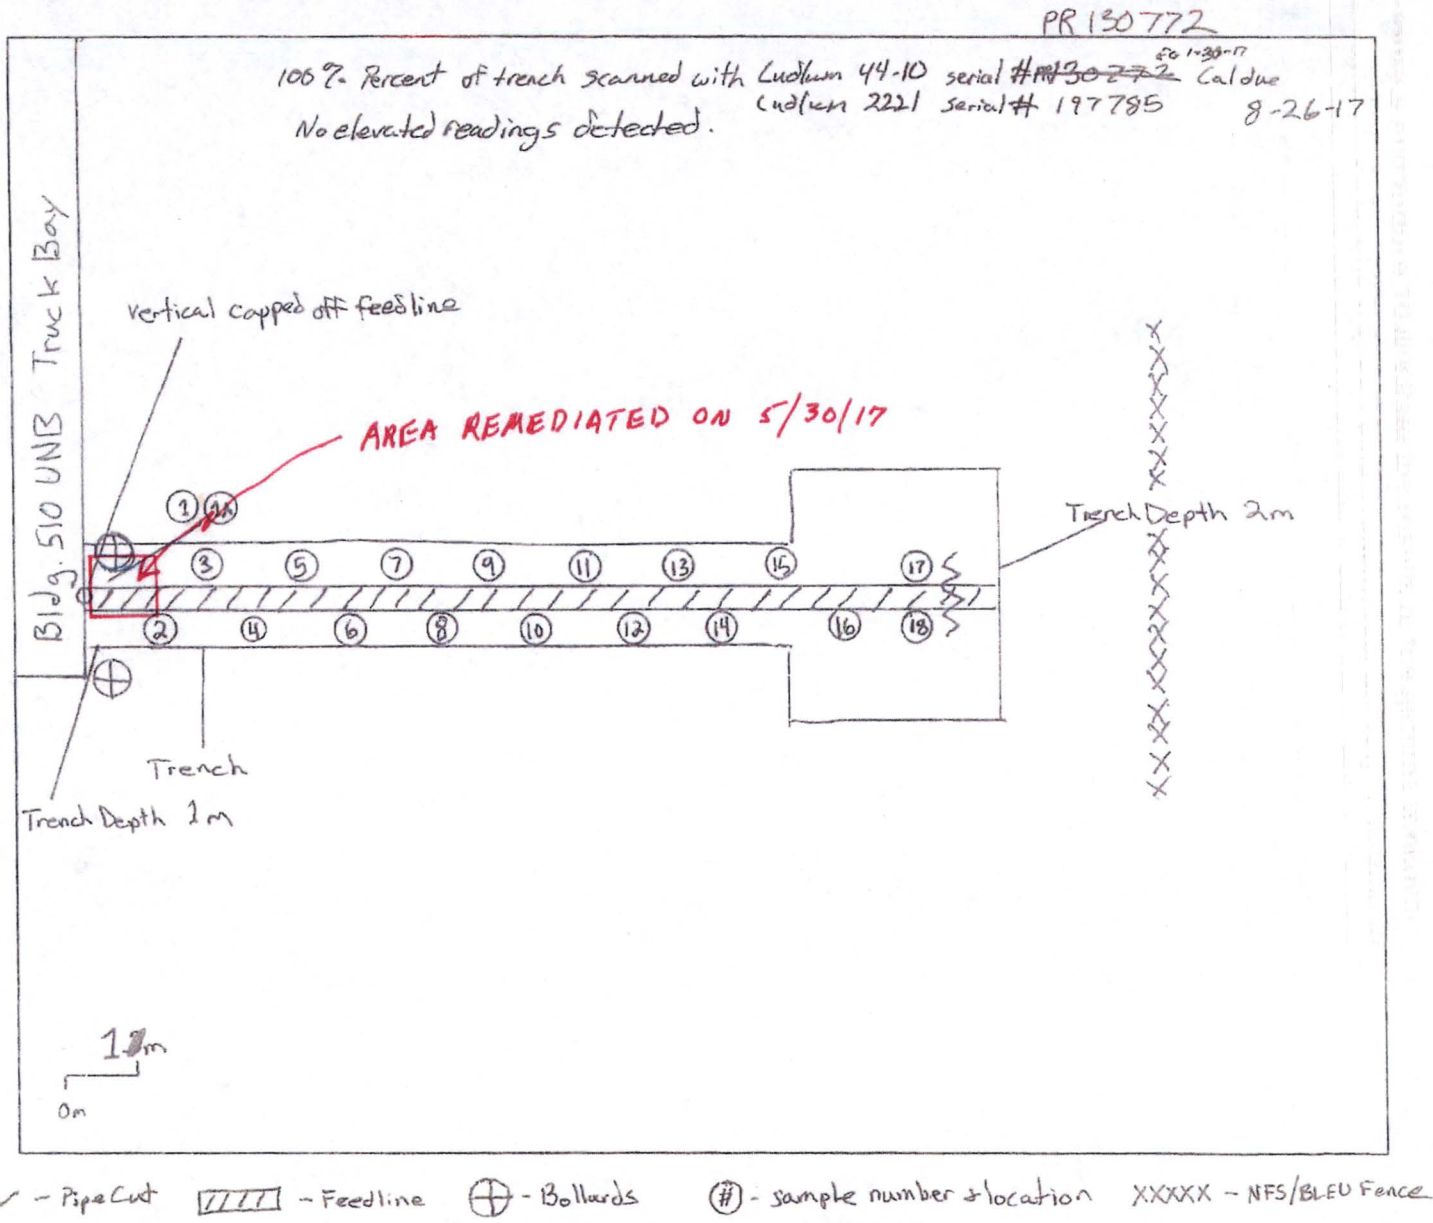 PR 130772
EG 1-30-17
100 % Percent of trench scanned with Ludlum 44-10 serial # Cal due
Ludlum 2221 serial# 197785 8-26-17
No elevated readings detected.
Bldg. 510 UNB Truck Bay
vertical capped off feedline
AREA REMEDIATED ON 5/30/17
1 1A
Trench Depth 2m
3 5 7 9 11 13 15 17
2 4 6 8 10 12 14 16 18
Trench
Trench Depth 1m
1 m
0m
- Pipe Cut - Feedline - Bollards # - sample number & location XXXXX - NFS/BLEU Fence